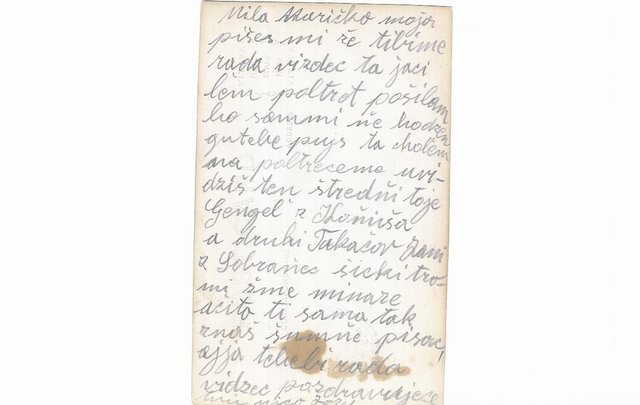 Mila Maričko moja
pišeš mi že tibi me
rada vizdec ta jaci
lem poltret pošilam
bo sammi ňe hodzen
gu tebe pujs ta cholem
na poltreceme uvi-
dziš ten štredňi to je
Gengel z Koňuša
a druhi Takačov Jani
z Sobranec šicki tro-
mi zme minaze
ačito ti sama tak
znaš šumňe pisac,
ajja tebebi rada
vidzec pozdravujeze